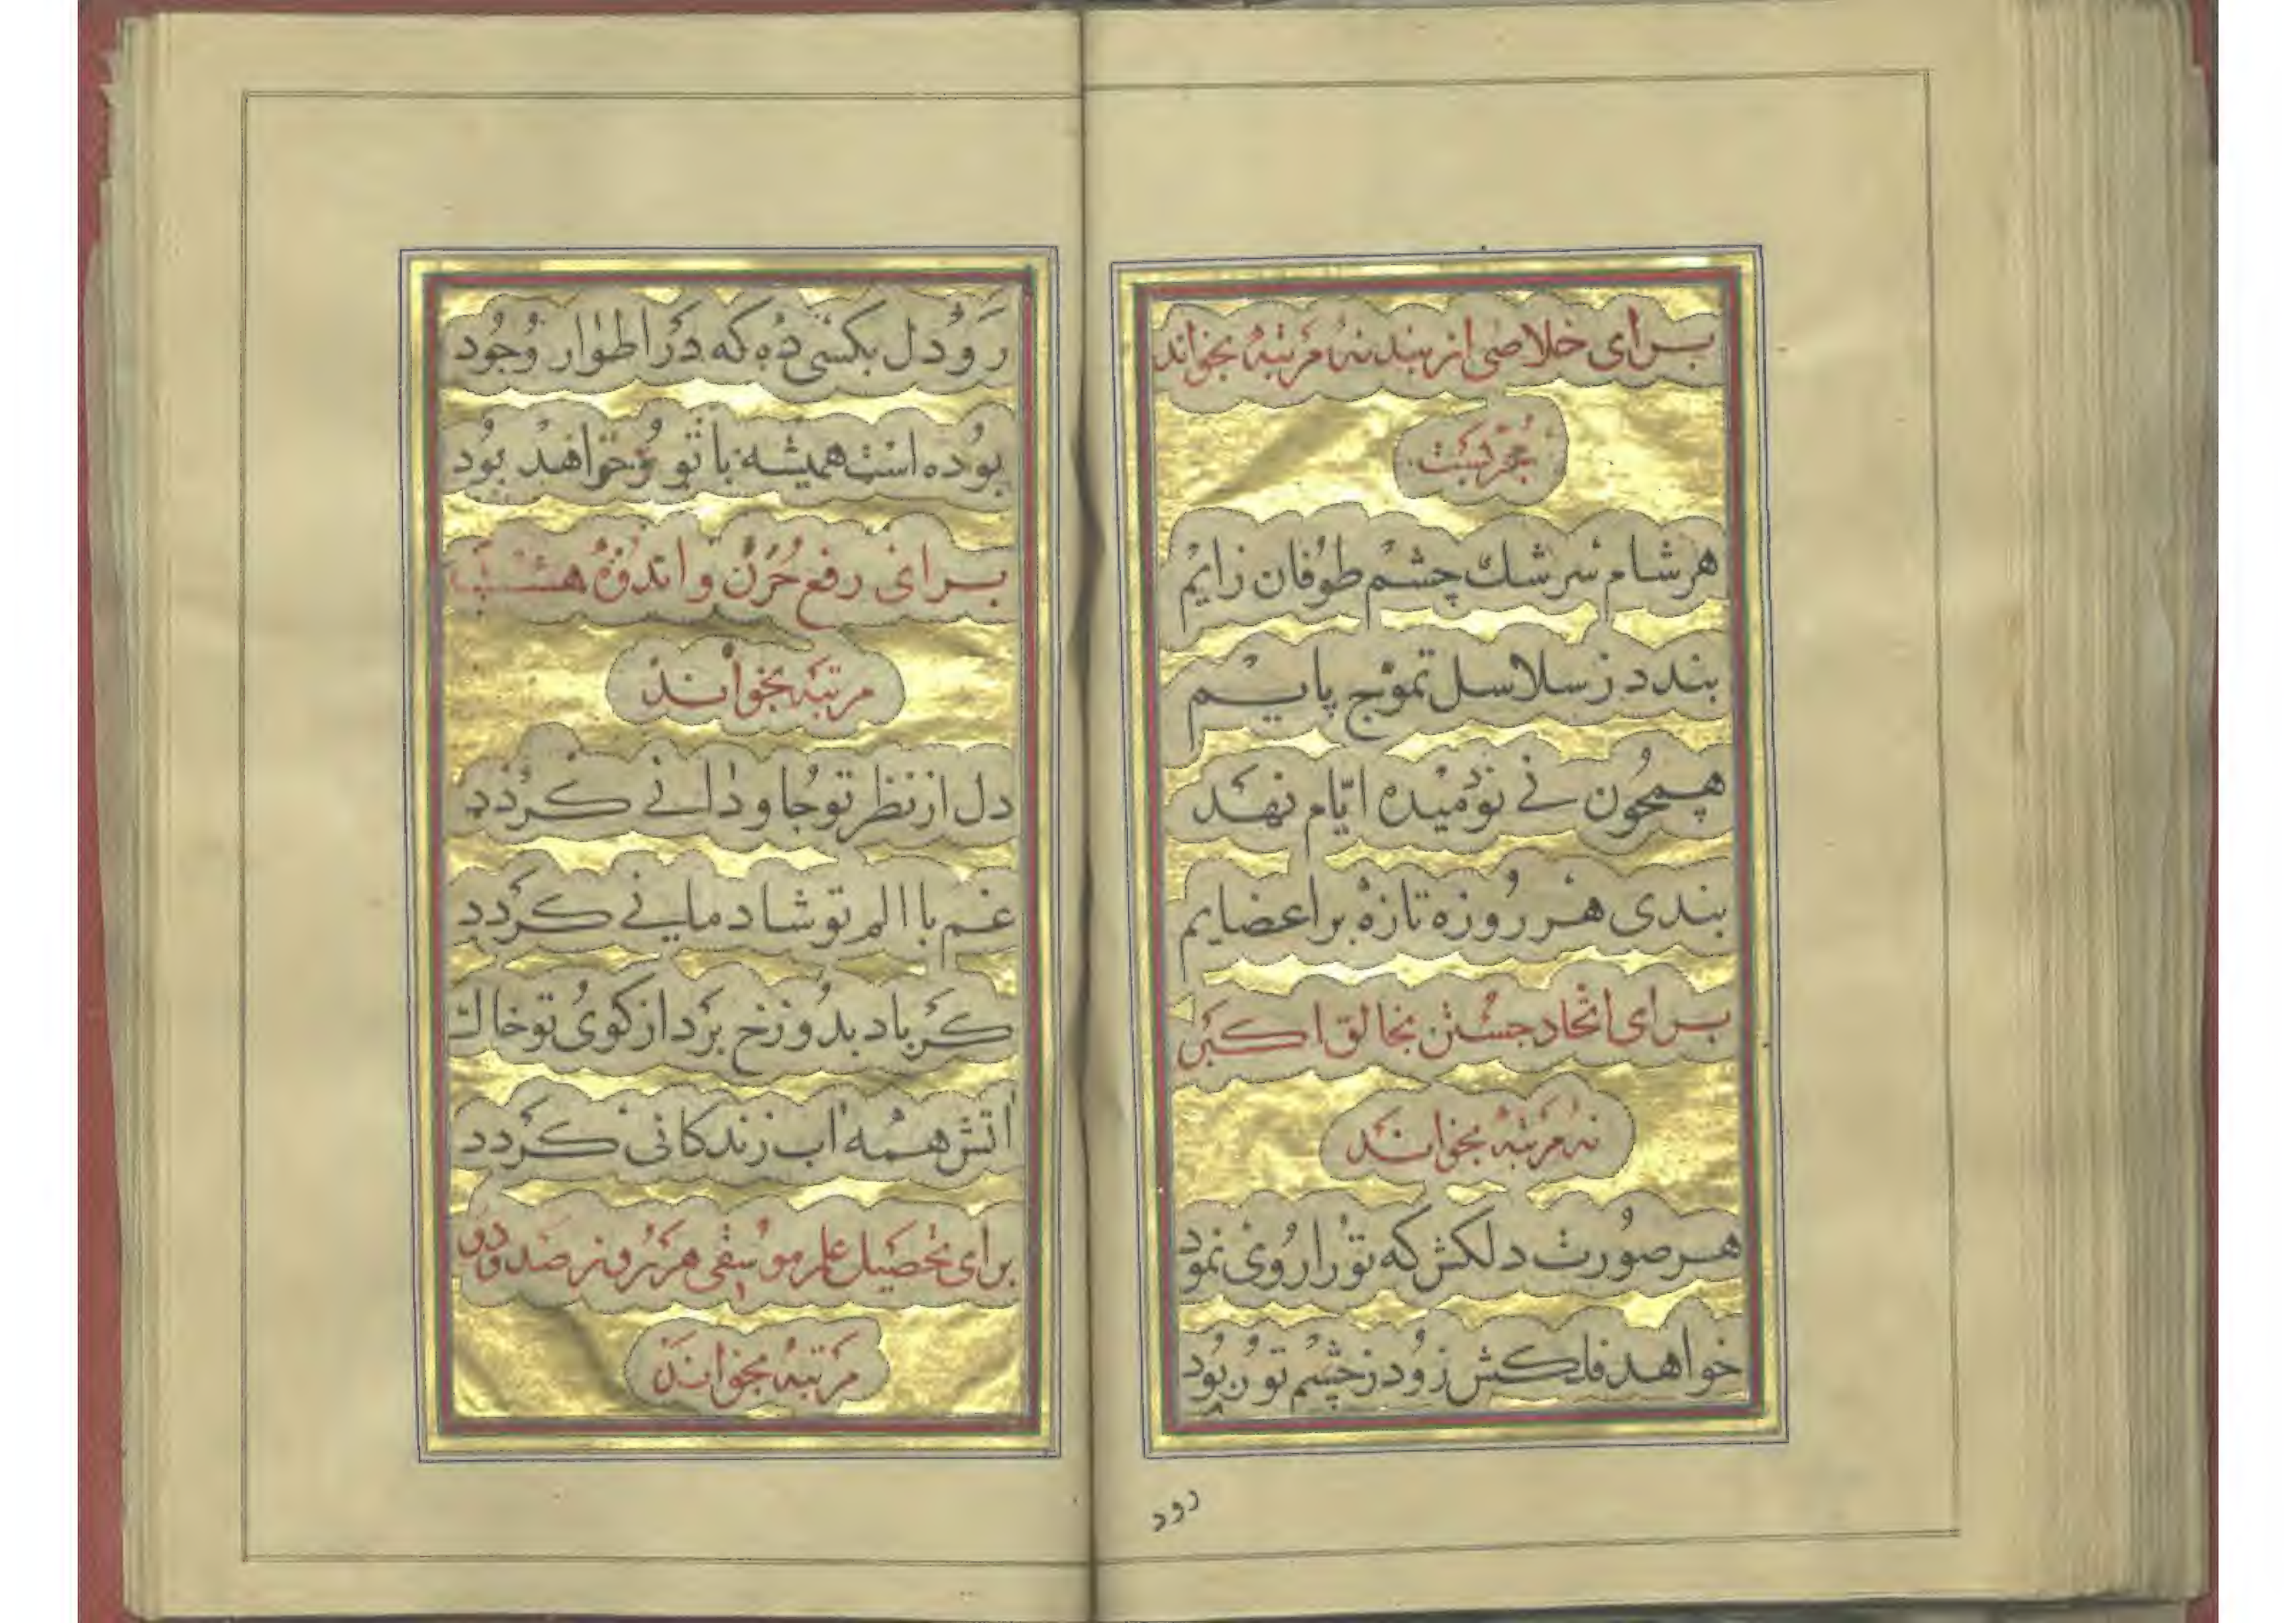 برای خلاصی از بند نه مرتبه بخواند
مجربست
هر شام سرشك چشم طوفان زایم
بندد ز سلاسل تموّج پایم
همچون نی نودمیده ایّام نهد
بندی هر روزه تازه بر اعضایم
برای اتحاد جستن بخالق اکبر
نه مرتبه بخواند
هر صورت دلکش که تو را روی نمود
خواهد فلکش زود ز چشم تو ربود
رود
رو دل بکسی ده که در اطوار وجود
بوده است همیشه با تو و خواهد بود
برای رفع حزن و اندوه هشت
مرتبه بخواند
دل از نظر تو جاودانی کردد
غم با الم تو شادمانی کردد
کر باد بدوزخ برد از کوی تو خاك
اتش همه اب زندکانی کردد
برای تحصیل علم موسیقی هر روز صد و
مرتبه بخواند